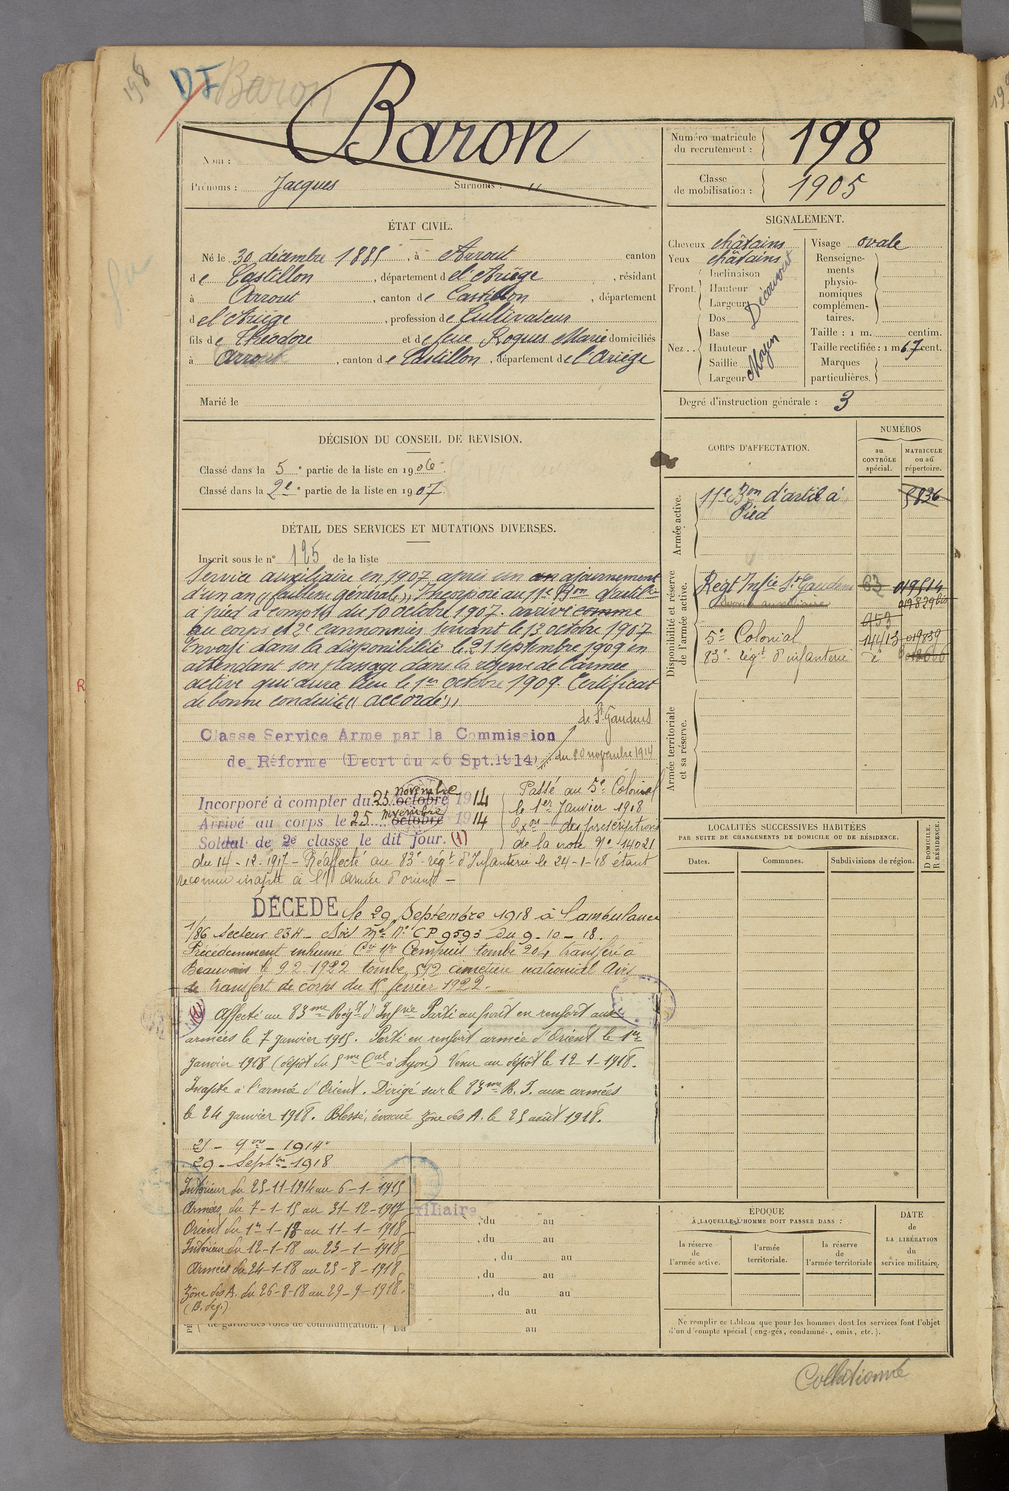 198
DJ Baron
Baron
Nom :
Prénoms : Jacques Surnoms : "
Numéro matricule du recrutement : 198
Classe de mobilisation : 1905
ÉTAT CIVIL.
Né le 30 décembre 1885, à Arrout canton
de Castillon, département de l'Ariège, résidant
à Arrout, canton de Castillon, département
de l'Ariège, profession de Cultivateur
fils de Théodore et de feue Roques Marie domiciliés
à Arrout, canton de Castillon, département de l'Ariège
Marié le
SIGNALEMENT.
Cheveux châtains
Yeux châtains
Front. Inclinaison Hauteur Largeur Découvert
Nez.. Dos Base Hauteur Saillie Largeur Moyen
Visage ovale
Renseignements physionomiques complémentaires.
Taille : 1 m. centim.
Taille rectifiée : 1 m 67 cent.
Marques particulières.
Degré d'instruction générale : 3
DÉCISION DU CONSEIL DE REVISION.
Classé dans la 5e partie de la liste en 1906.
Classé dans la 2e partie de la liste en 1907.
DÉTAIL DES SERVICES ET MUTATIONS DIVERSES.
Inscrit sous le n° 125 de la liste
Service auxiliaire en 1907 après un an ajournement
d'un an (( faiblesse générale )), Incorporé au 11e Bon d'artillie
à pied à compter du 10 octobre 1907. arrivé comme
au corps et 2e cannonnier servant le 13 octobre 1907
Envoyé dans la disponibilité le 21 septembre 1909 en
attendant son passage dans la réserve de l'armée
active qui aura lieu le 1er octobre 1909. Certificat
de bonne conduite (( accordé ))
Classe Service Arme par la Commission de St Gaudens
de Réforme (Decrt du 26 Spt.1914) du 20 novembre 1914
Incorporé à compter du 25 octobre novembre 1914
Arrivé au corps le 25 octobre novembre 1914
Soldat de 2e classe le dit jour. (1)
Passé au 5e Colonial
le 1er Janvier 1918
Exon des prescriptions
de la note No 14021
du 14-12-1917 - Réaffecté au 83e régt d'Infanterie le 24-1-18 étant
reconnu inapte à l'armée d'orient -
DÉCÉDÉ le 29 Septembre 1918 à l'ambulance
1/86 Secteur 23H - Avis Mel No CP 9593 - Du 9-10-18.
Précédemment inhumé Cre Mre Compuis tombe 204 transféré à
Beauvais le 9.2.1922 tombe 592 cimetière national Avis
de transfert de corps du 15 février 1922.
(1) Affecté au 83me Régt d'Infrie Parti au front en renfort aux
armées le 7 janvier 1915. Parti en renfort armée d'Orient le 1er
Janvier 1918 (dépôt du 5me Cal à Lyon) Venu au dépôt le 12-1-1918.
Inapte à l'armée d'Orient. Dirigé sur le 83me R.I. aux armées
le 24 janvier 1918. Blessé, évacué zone des A. le 25 août 1918.
25 - 9bre - 1914
29 - Septbre - 1918
Intérieur du 25-11-1914 au 6-1-1915
Armées du 7-1-15 au 31-12-1917
Orient du 1er 1-18 au 11-1-1918
Intérieur du 12-1-18 au 23-1-1918
Armées du 24-1-18 au 25-8-1918
Zone des A. du 26-8-18 au 29-9-1918.
xiliaire
, du au
, du au
, du au
, du au
, du au
au
de garde des voies de communication. au
CORPS D'AFFECTATION.
NUMÉROS
au CONTRÔLE spécial.
MATRICULE ou au répertoire.
Armée active.
11e Bon d'artie à Pied 5836
Disponibilité et réserve de l'armée active.
Régt Infie St Gaudens 63 019514
Service auxiliaire 019829 bis
953
5e Colonial 14413 019839
83e régt d'infanterie
Armée territoriale et sa réserve.
LOCALITÉS SUCCESSIVES HABITÉES
PAR SUITE DE CHANGEMENTS DE DOMICILE OU DE RÉSIDENCE.
Dates. Communes. Subdivisions de région. D DOMICILE. R RÉSIDENCE.
ÉPOQUE
À LAQUELLE L'HOMME DOIT PASSER DANS :
la réserve de l'armée active.
l'armée territoriale.
la réserve de l'armée territoriale
DATE de LA LIBÉRATION du service militaire.
Ne remplir ce tableau que pour les hommes dont les services font l'objet
d'un décompte spécial (engagés, condamnés, omis, etc.).
Collationné
R